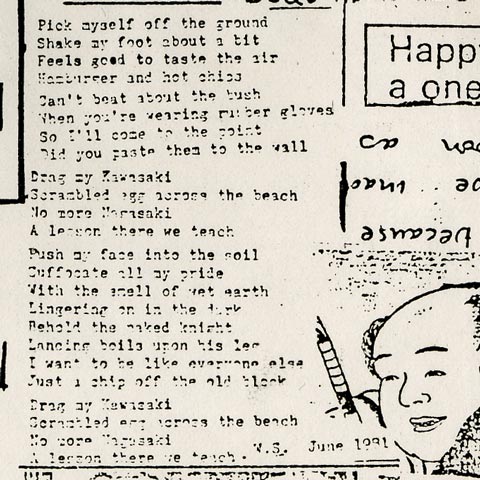 Pick myself off the ground
Shake my foot about a bit
Feels good to taste the air
Hamburger and hot chips
Can't beat about the bush
When you're wearing rubber gloves
So I'll come to the point
Did you paste them to the wall
Drag my Kawasaki
Scrambled egg across the beach
No more Nagasaki
A lesson there we teach
Push my face into the soil
Suffocate all my pride
With the smell of wet earth
Lingering on in the dark
Behold the naked knight
Lancing boils upon his leg
I want to be like everyone else
Just a chip off the old block
Drag my Kawasaki
Scrambled egg across the beach
No more Nagasaki
A lesson there we teach.
W.S. June 1981
Happy
a one
as
because